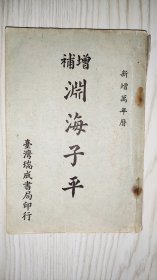 新增萬年曆
增補
淵海子平
臺灣瑞成書局印行